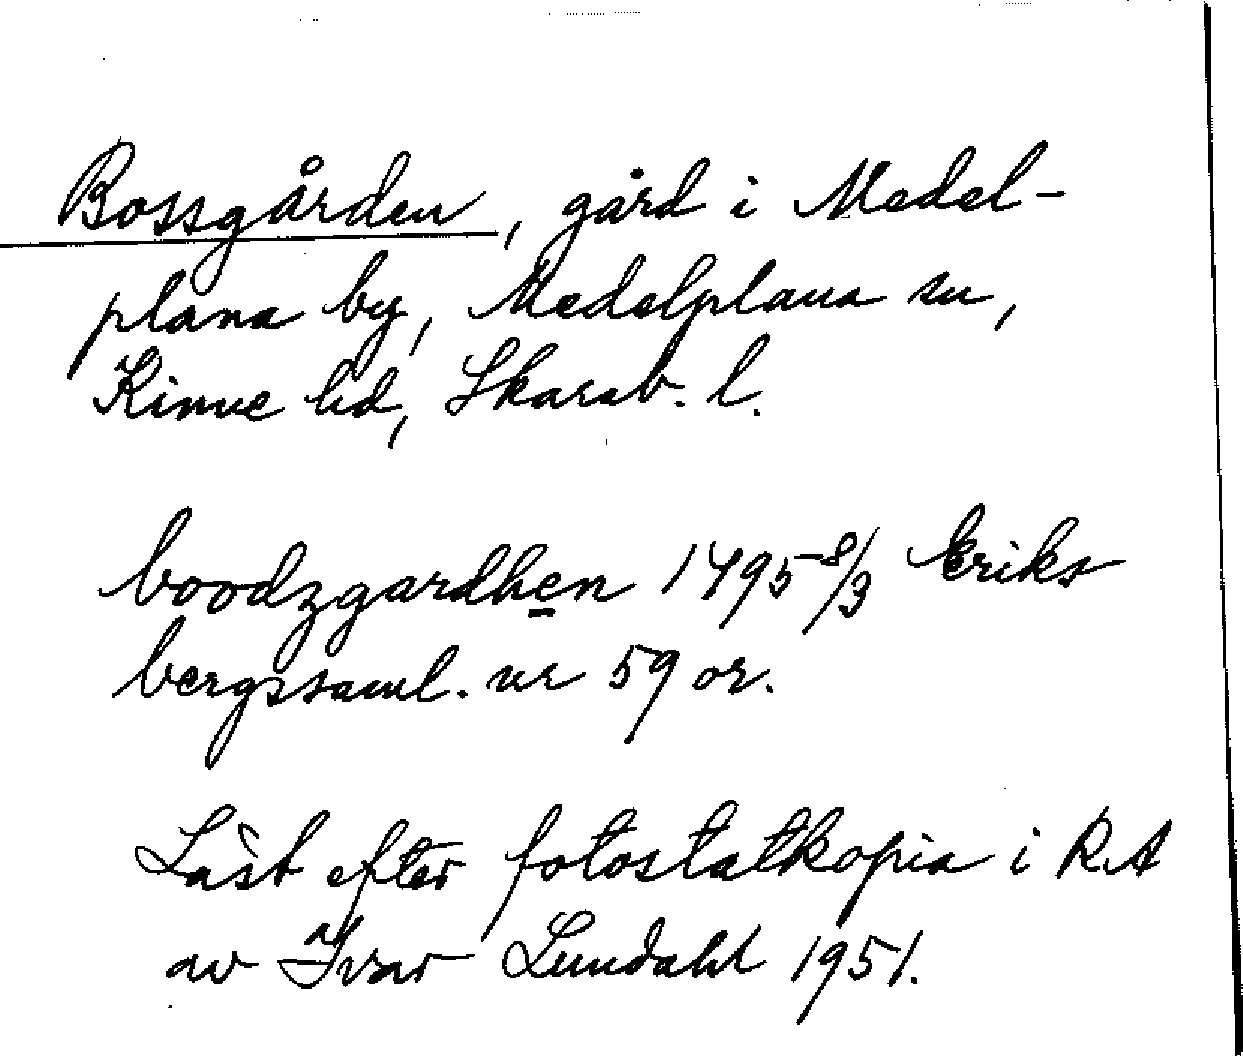 Bossgården, gård i Medel-
plana by, Medelplana sn,
Kinne hd, Skarab. l.
boodzgardhen 1495 8/3 Eriks
bergssaml. nr 59 or.
Läst efter fotostatkopia i R.A
av Ivar Lundahl 1951.